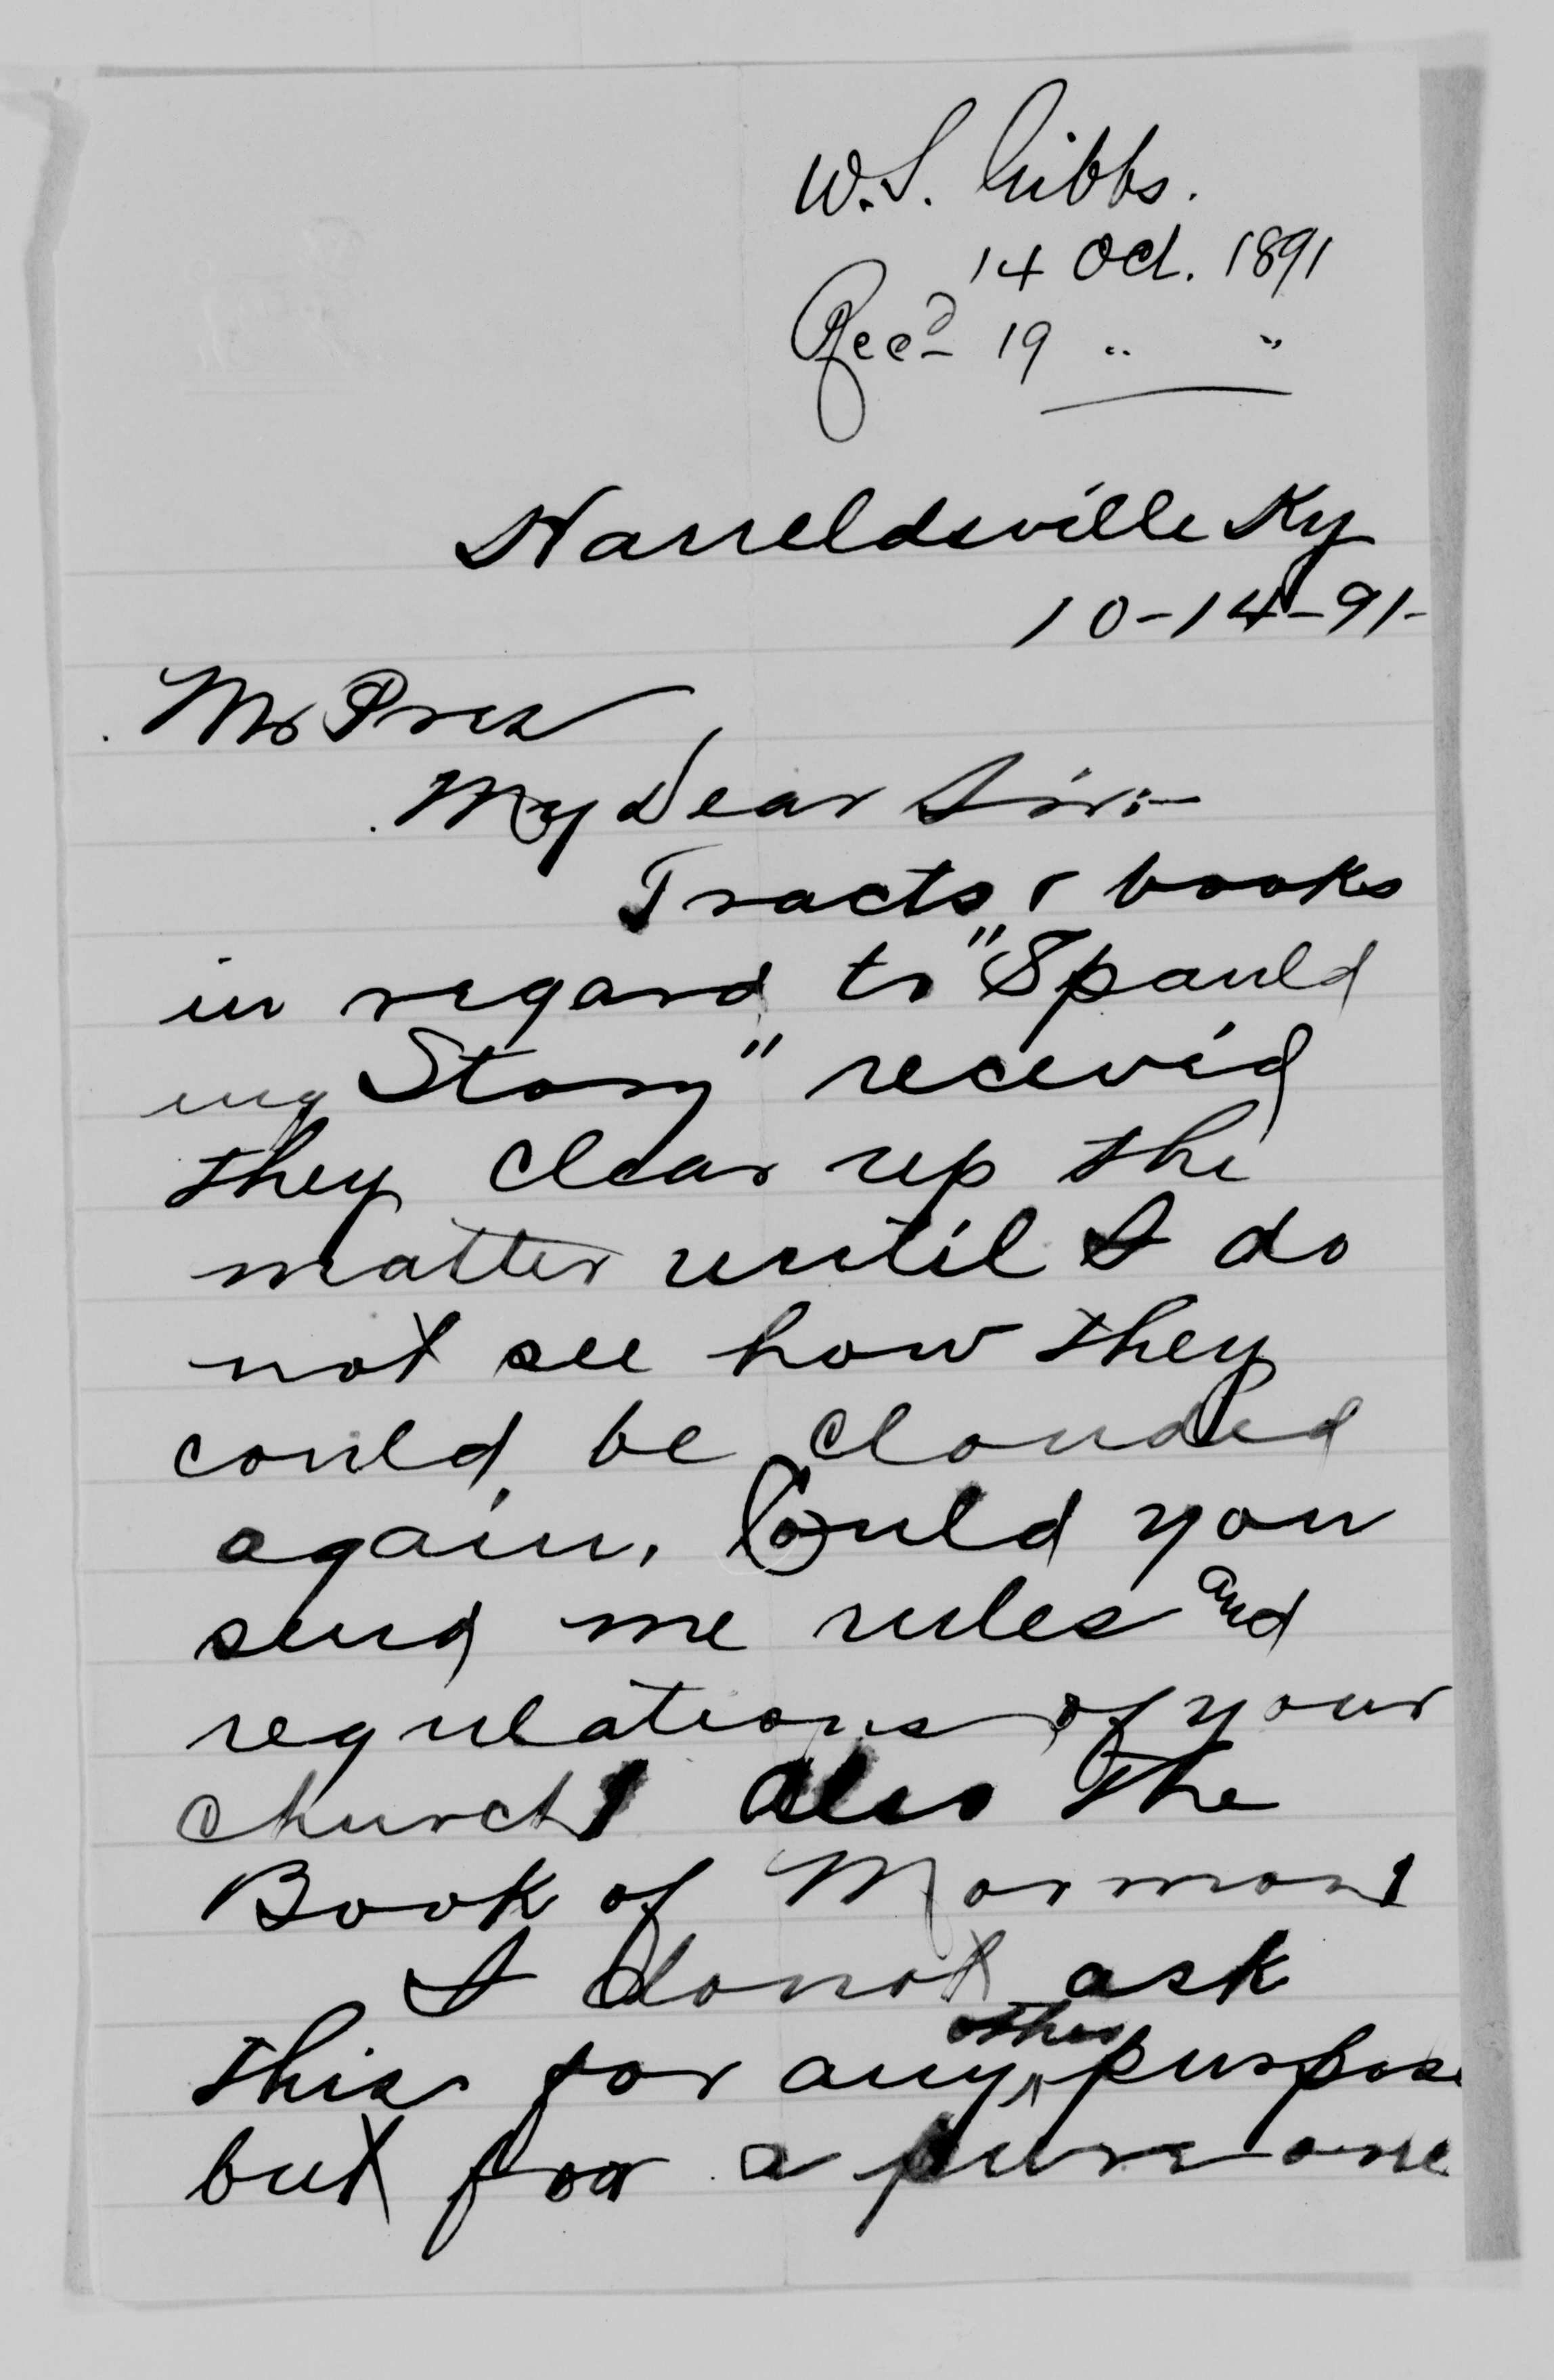 W.S. Gibbs.
14 Oct. 1891
Rec'd 19 " "
Harreldsville Ky
10-14-91-
Mr Pres
My Dear Sir:-
Tracts & books
in regard to "Spauld
ing Story" receivid
they clear up the
matter until I do
not see how they
could be clouded
again. Could you
send me rules and
regulations of your
church, also the
Book of Mormon,
I do not ask
this for any other purpose
but for a pure one